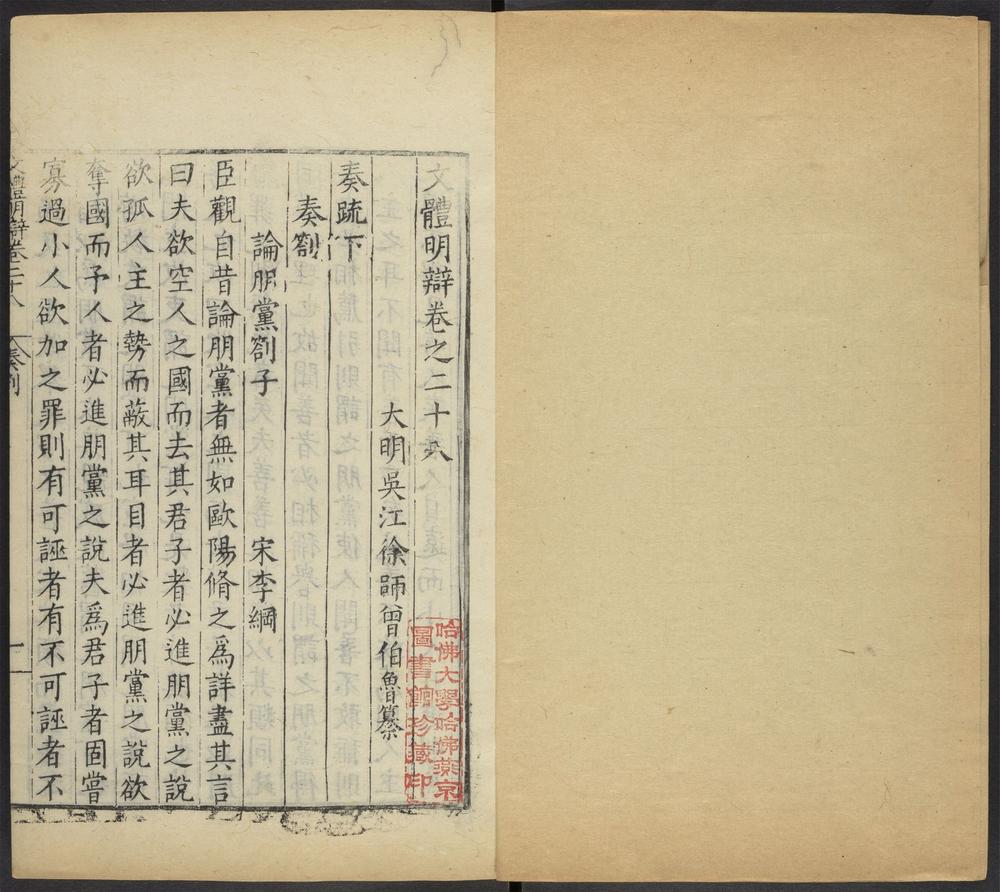 文體明辯卷之二十八
大明吳江徐師曾伯魯纂
奏疏下
奏劄
論朋黨劄子 宋李綱
臣觀自昔論朋黨者無如歐陽脩之爲詳盡其言
曰夫欲空人之國而去其君子者必進朋黨之說
欲孤人主之勢而蔽其耳目者必進朋黨之說欲
奪國而予人者必進朋黨之說夫爲君子者固嘗
寡過小人欲加之罪則有可誣者有不可誣者不
文體明辯卷二十八
奏劄
一
哈佛大學哈佛燕京
圖書館珍藏印